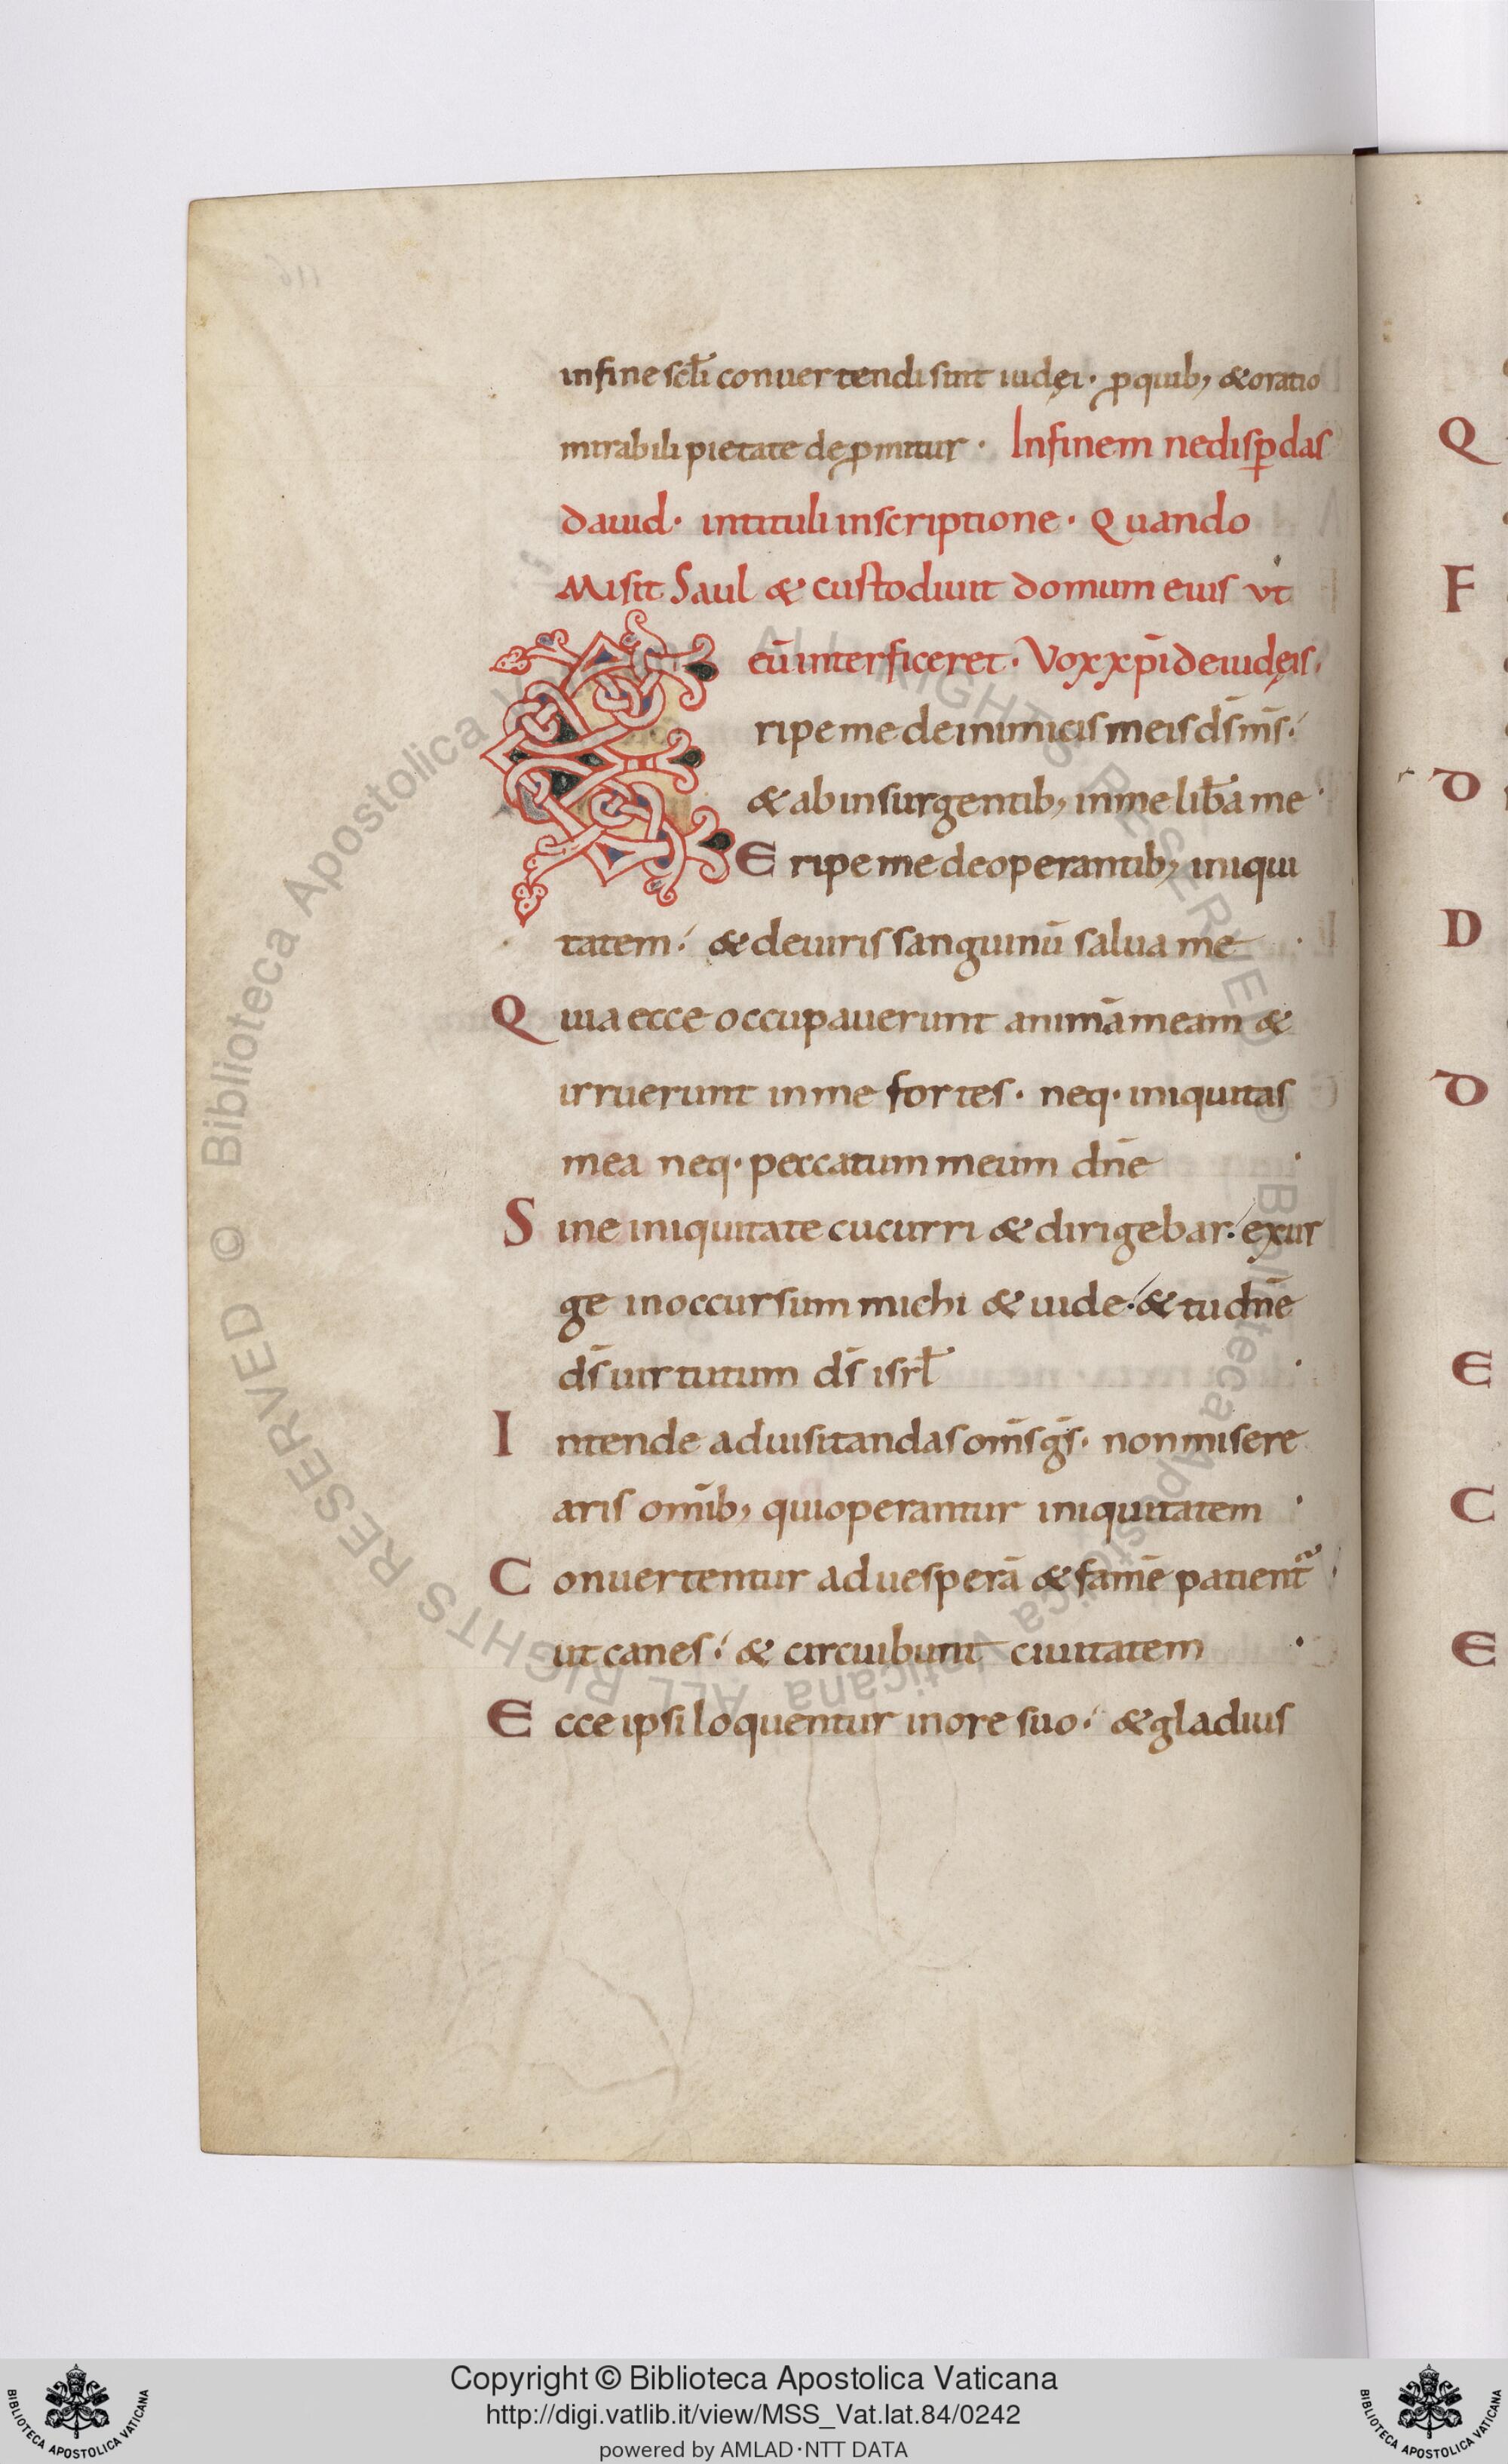 in fine scłi conuertendi sunt iudęi · ꝓ quib; & oratio
mirabili pietate deꝓmitur · In finem ne disꝑdas
dauid · in tituli inscriptione · Quando
Misit Saul & custodiuit domum eius vt
eū interficeret · Vox xp̄i de iudęis.
Eripe me de inimicis meis d̄s m̄s·
& ab insurgentib; in me lib̄a me ·
Eripe me de operantib; iniqui
tatem · & de uiris sanguinū salua me ·
Quia ecce occupauerunt animā meam &
irruerunt in me fortes · neq· iniquitas
mea neq· peccatum meum dn̄e ·
Sine iniquitate cucurri & dirigebar · exur
ge in occursum michi & uide · & tu dn̄e
d̄s uirtutum d̄s isrł ·
Intende ad uisitandas om̄s ḡs · non misere
aris om̄ib; qui operantur iniquitatem ·
Conuertentur ad uesperā & famē patient᷑ ·
ut canes · & circuibunt ciuitatem ·
Ecce ipsi loquentur in ore suo · & gladius
Q
F
D
D
D
E
C
E
© Biblioteca Apostolica Vaticana ALL RIGHTS RESERVED
Copyright © Biblioteca Apostolica Vaticana
http://digi.vatlib.it/view/MSS_Vat.lat.84/0242
powered by AMLAD·NTT DATA
BIBLIOTECA APOSTOLICA VATICANA
BIBLIOTECA APOSTOLICA VATICANA